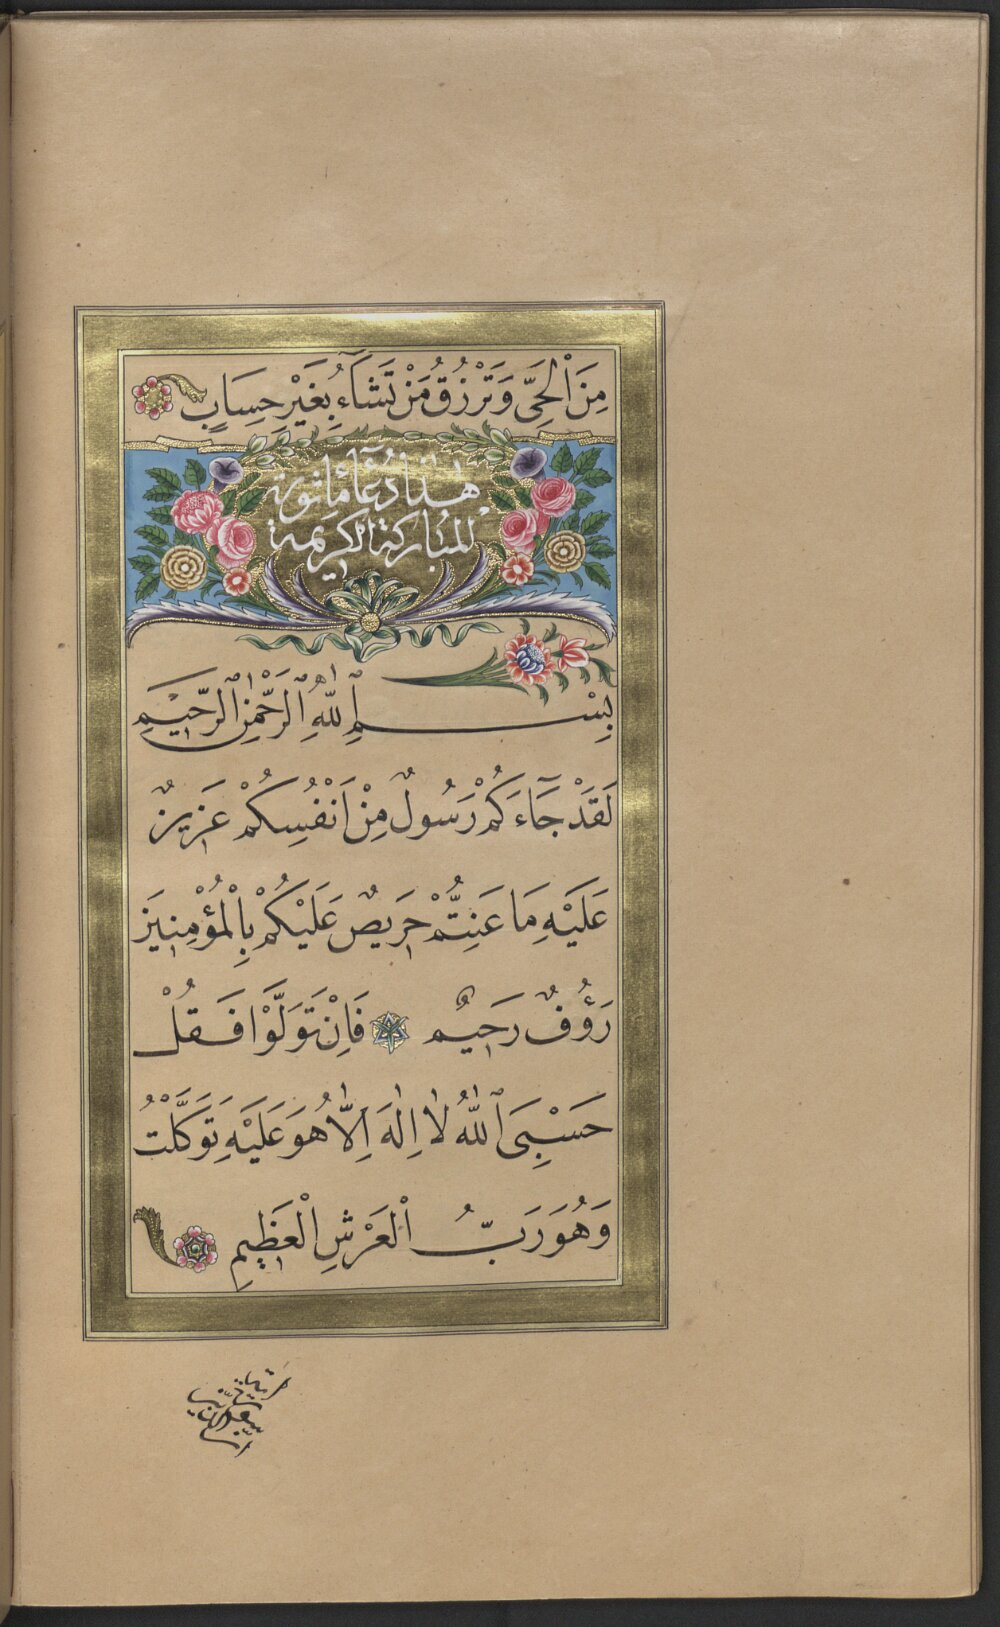 مِنَ الْحَيِّ وَتَرْزُقُ مَنْ تَشَآءُ بِغَيْرِ حِسَابٍ
هذا دُعَآء مأثورة
المباركة الكريمة
بِسْمِ اللّٰهِ الرَّحْمٰنِ الرَّحِيمِ
لَقَدْ جَآءَكُمْ رَسُولٌ مِنْ اَنْفُسِكُمْ عَزِيزٌ
عَلَيْهِ مَا عَنِتُّمْ حَرِيصٌ عَلَيْكُمْ بِالْمُؤْمِنِينَ
رَؤُفٌ رَحِيمٌ فَاِنْ تَوَلَّوْا فَقُلْ
حَسْبِىَ اللّٰهُ لَا اِلٰهَ اِلَّا هُوَ عَلَيْهِ تَوَكَّلْتُ
وَهُوَ رَبُّ الْعَرْشِ الْعَظِيمِ